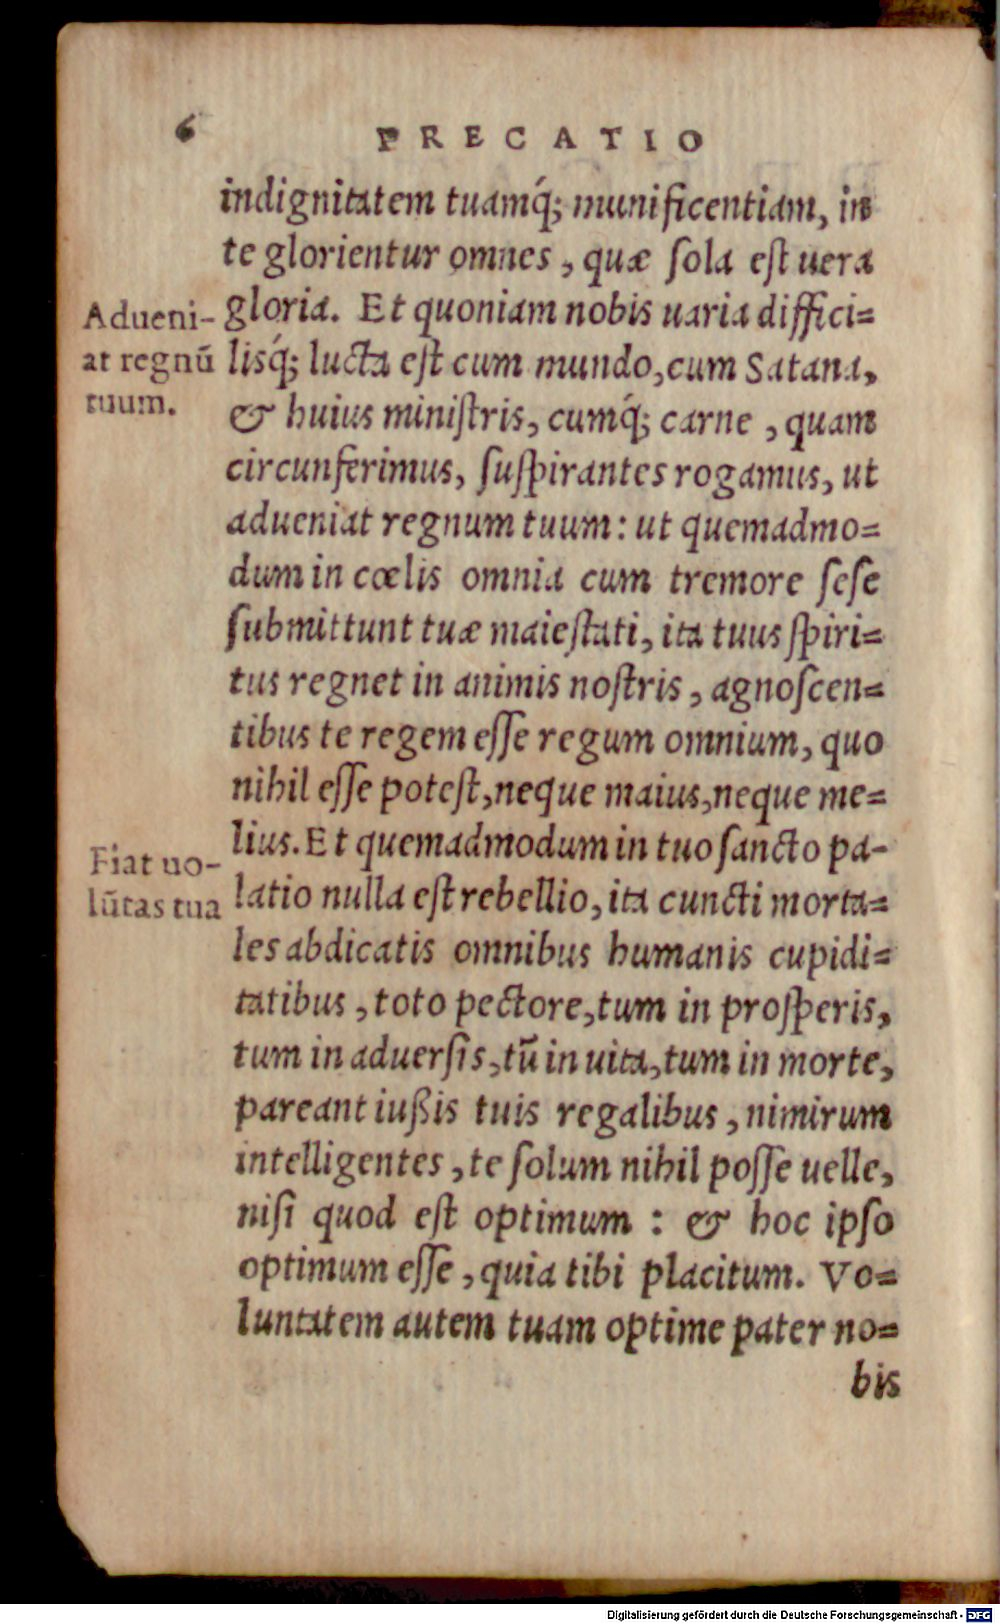 6 PRECATIO
indignitatem tuamq́; munificentiam, in
te glorientur omnes, quæ ſola eſt uera
gloria. Et quoniam nobis uaria diffici=
lisq́; lucta eſt cum mundo, cum Satana,
& huius miniſtris, cumq́; carne, quam
circunferimus, ſuſpirantes rogamus, ut
adueniat regnum tuum: ut quemadmo=
dum in cœlis omnia cum tremore ſeſe
ſubmittunt tuæ maieſtati, ita tuus ſpiri=
tus regnet in animis noſtris, agnoſcen=
tibus te regem eſſe regum omnium, quo
nihil eſſe poteſt, neque maius, neque me=
lius. Et quemadmodum in tuo ſancto pa-
latio nulla eſt rebellio, ita cuncti morta=
les abdicatis omnibus humanis cupidi=
tatibus, toto pectore, tum in proſperis,
tum in aduerſis, tū in uita, tum in morte,
pareant iußis tuis regalibus, nimirum
intelligentes, te ſolum nihil poſſe uelle,
niſi quod eſt optimum : & hoc ipſo
optimum eſſe, quia tibi placitum. Vo=
luntatem autem tuam optime pater no=
bis
Adueni-
at regnū
tuum.
Fiat uo-
lūtas tua
Digitalisierung gefördert durch die Deutsche Forschungsgemeinschaft - DFG